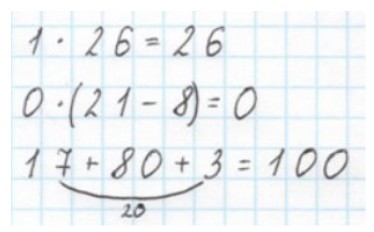 1 · 26 = 26
0 · (21 - 8) = 0
17 + 80 + 3 = 100
20